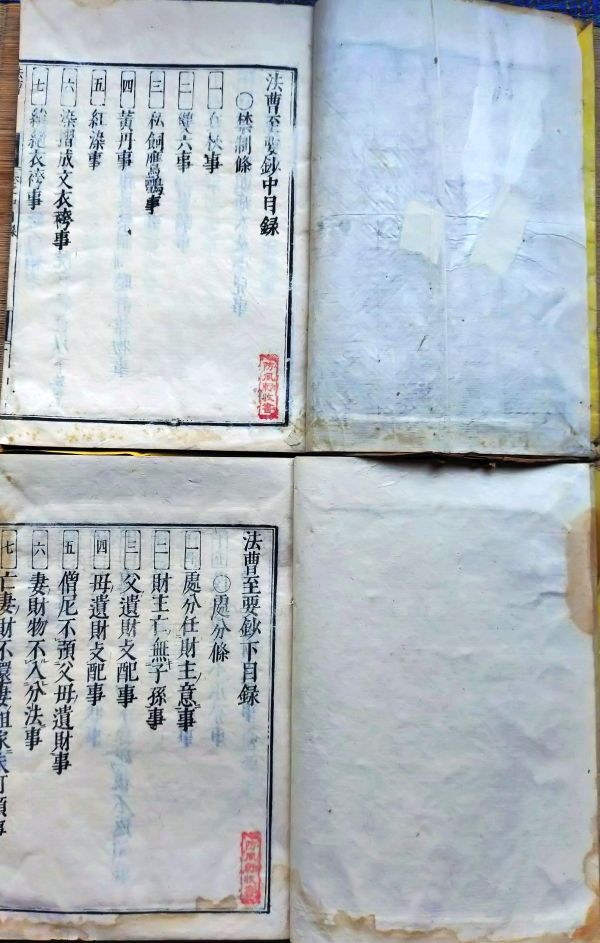 法曹至要鈔中目録
〇禁制條
一 事
二 雙六事
三 私飼鷹鷂事
四 黃丹事
五 紅染事
六 染摺成文衣袴事
七 衣袴事
防風軒收書
法曹至要鈔下目録
〇處分條
一 處分任財主意事
二 財主亡無子孫事
三 父遺財支配事
四 母遺財支配事
五 僧尼不預父母遺財事
六 妻財物不入分法事
七 亡妻財不還妻祖家夫可領事
防風軒收書